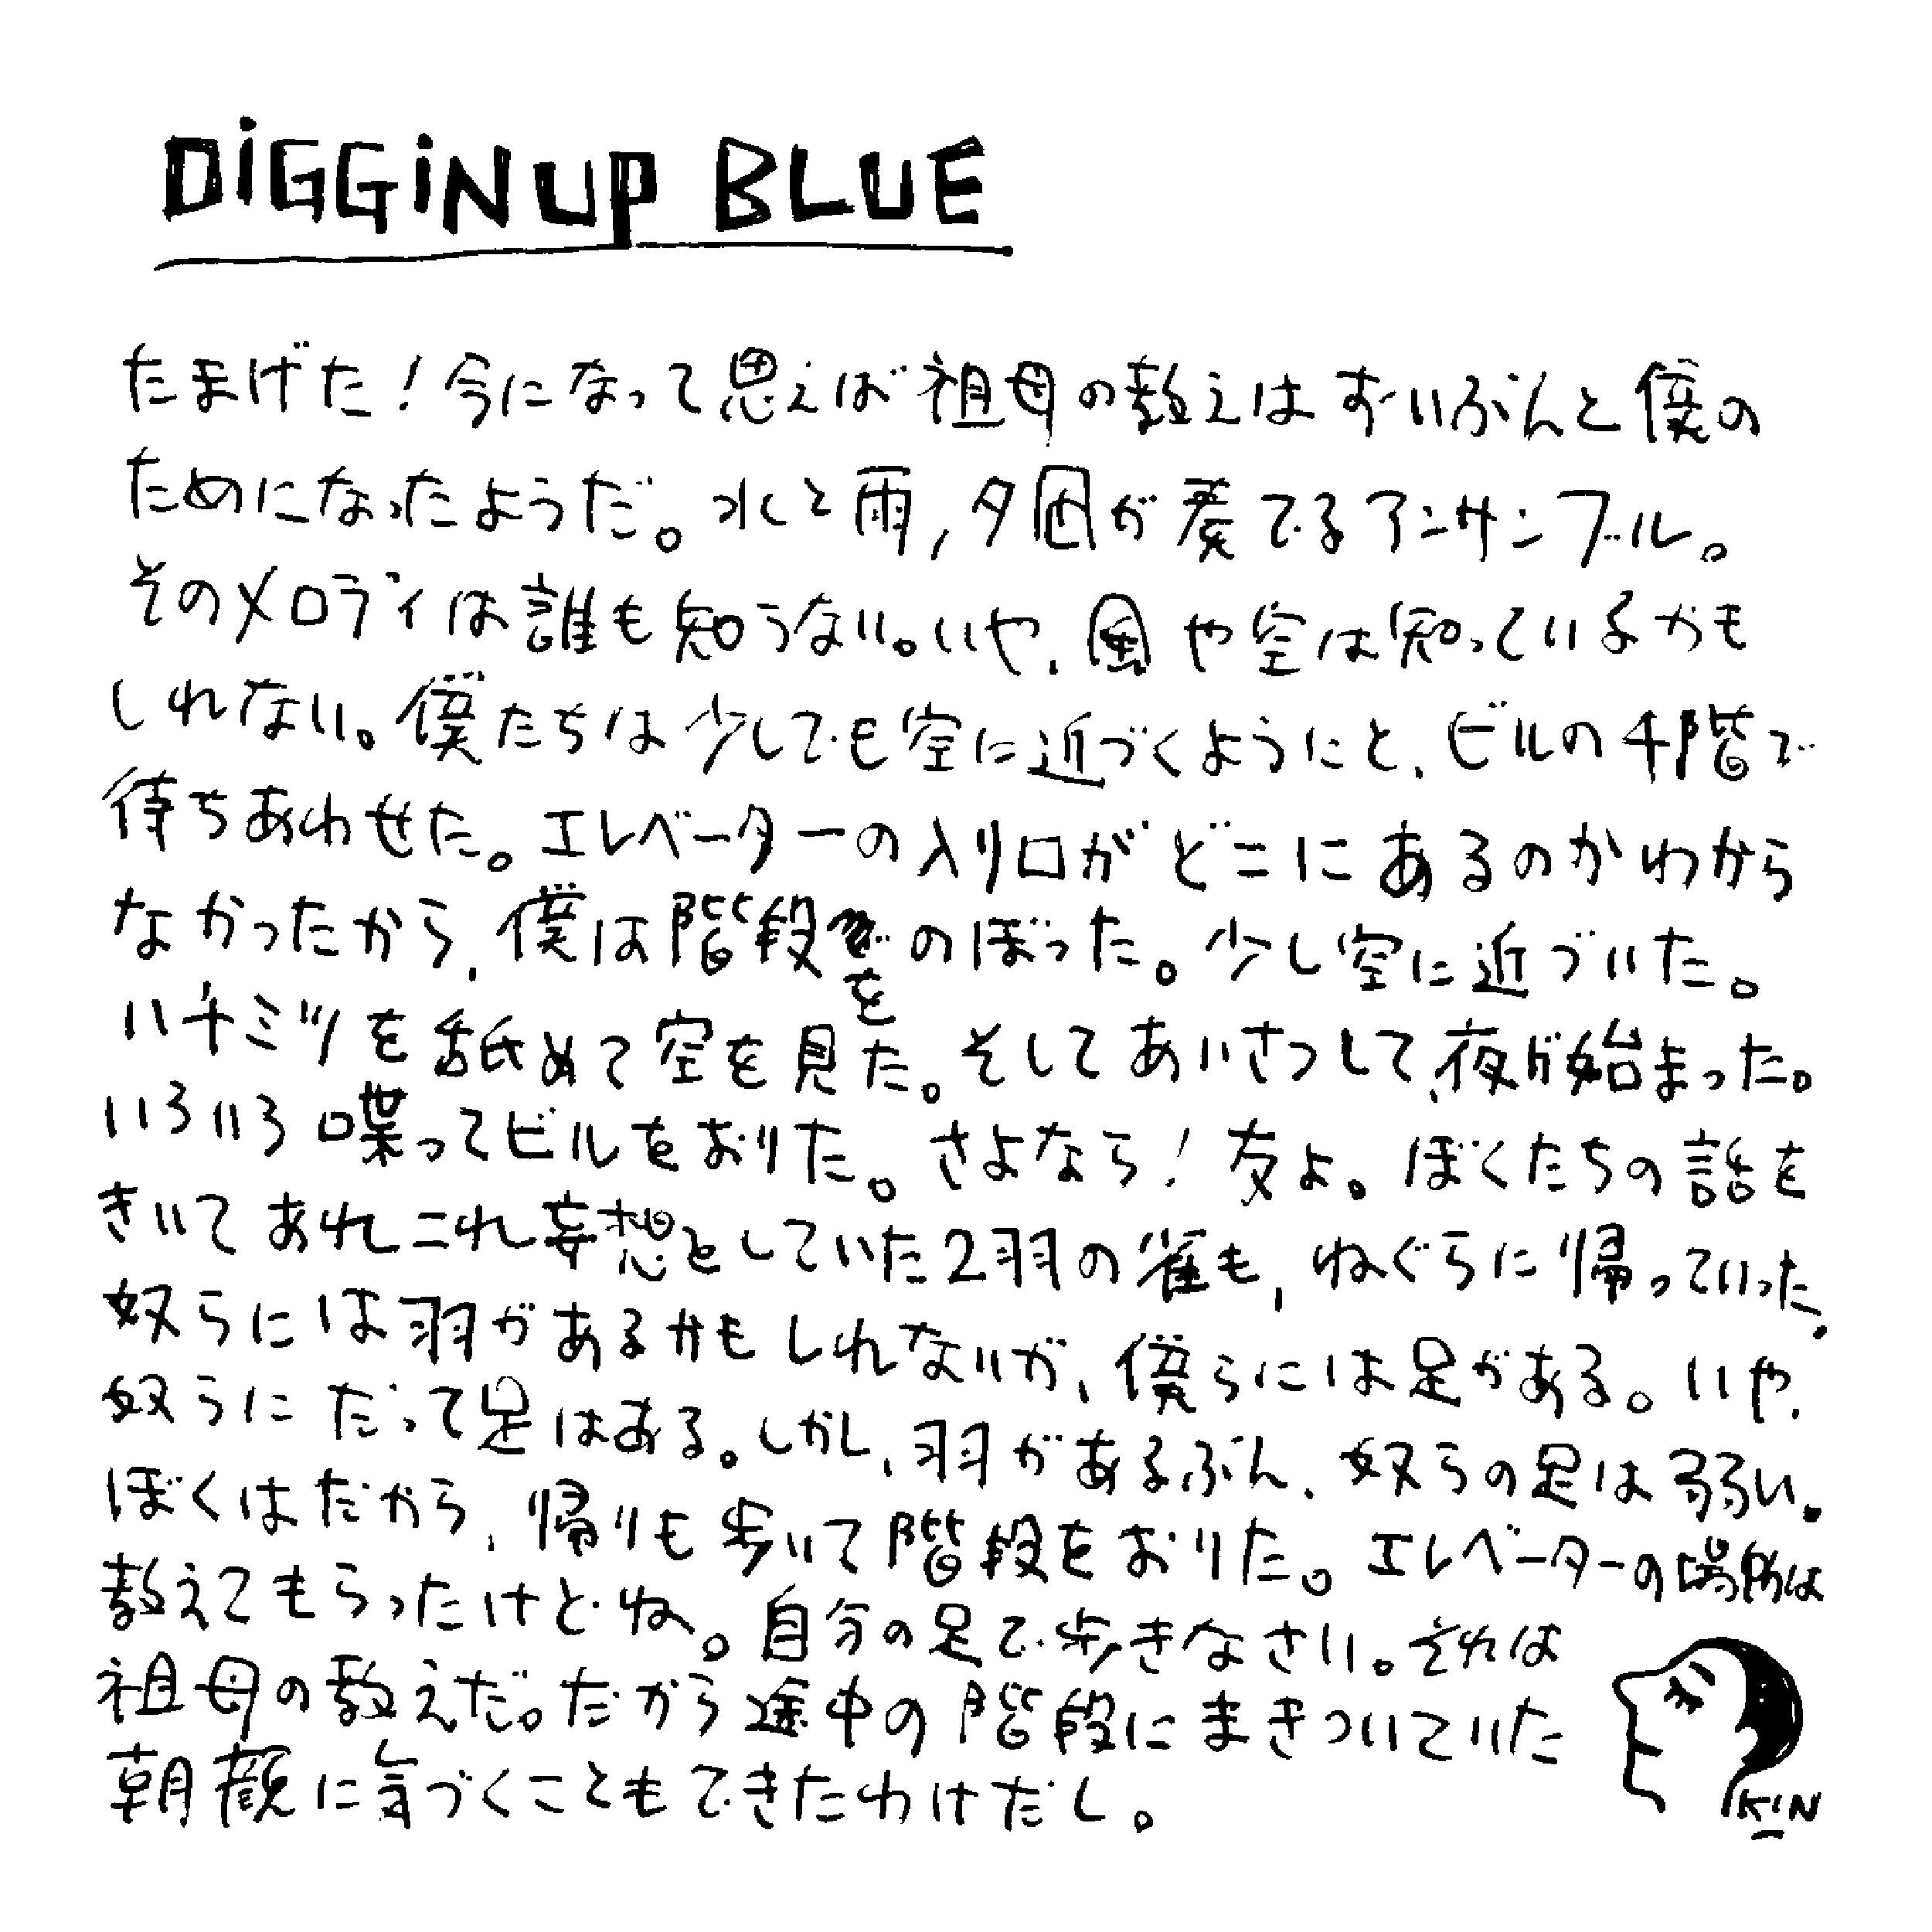 DiGGiN UP BLUE
たまげた!今になって思えば祖母の教えはずいぶんと僕の
ためになったようだ。水と雨,夕凪が奏でるアンサンブル。
そのメロディは誰も知らない。いや、風や空は知っているかも
しれない。僕たちは少しでも空に近づくようにと、ビルの4階で
待ちあわせた。エレベーターの入り口がどこにあるのかわから
なかったから、僕は階段をのぼった。少し空に近づいた。
ハチミツを舐めて空を見た。そしてあいさつして、夜が始まった。
いろいろ喋ってビルをおりた。さよなら!友よ。ぼくたちの話を
きいてあれこれ妄想をしていた2羽の雀も,ねぐらに帰っていった。
奴らには羽があるかもしれないが、僕らには足がある。いや、
奴らにだって足はある。しかし、羽があるぶん、奴らの足は弱い。
ぼくはだから、帰りも歩いて階段をおりた。エレベーターの場所は
教えてもらったけどね。自分の足で歩きなさい。それは
祖母の教えだ。だから途中の階段にまきついていた
朝顔に気づくこともできたわけだし。
KiN